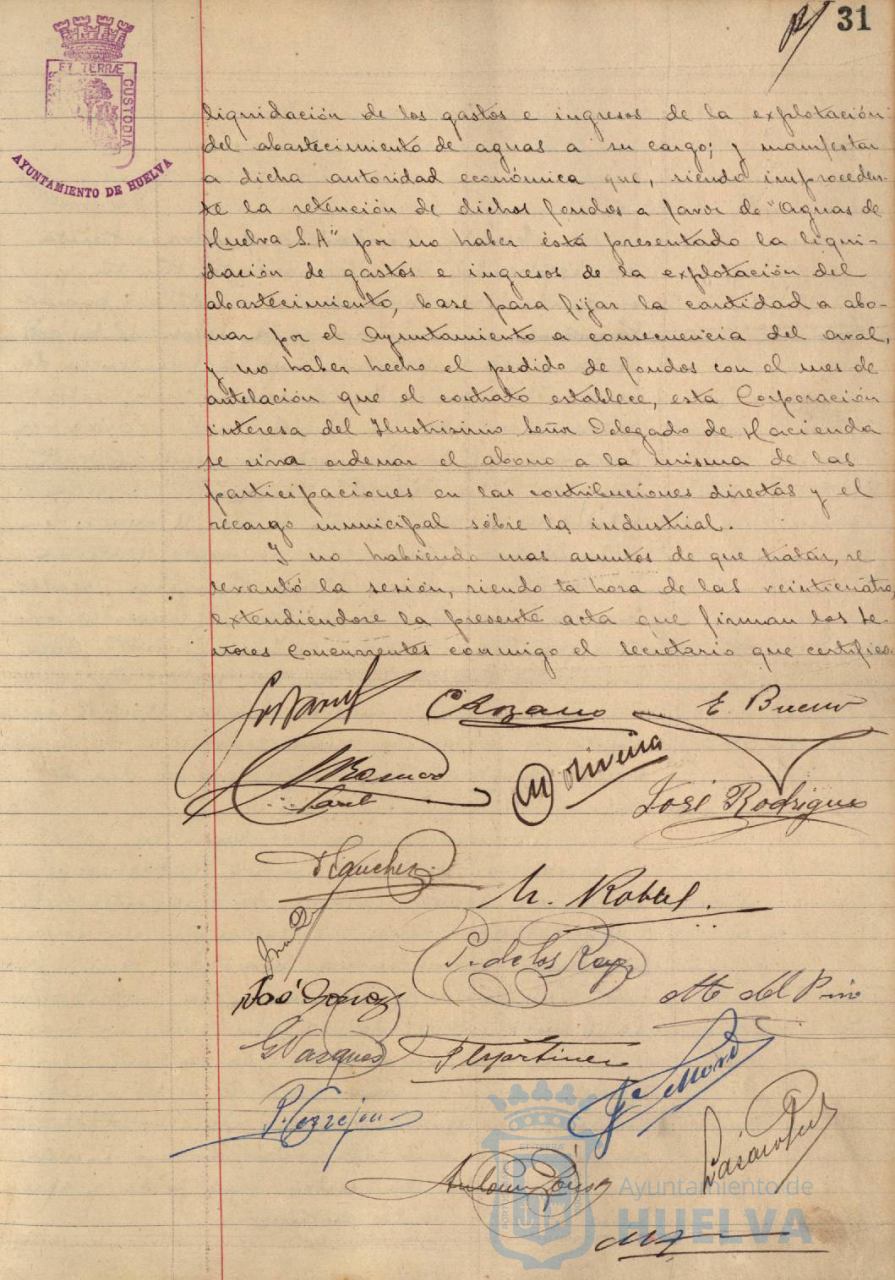 31
ET TERRÆ
CUSTODIA
AYUNTAMIENTO DE HUELVA
liquidación de los gastos e ingresos de la explotación
del abastecimiento de aguas a su cargo; y manifestar
a dicha autoridad económica que, siendo improceden-
te la retención de dichos fondos a favor de "Aguas de
Huelva S.A" por no haber ésta presentado la liqui-
dación de gastos e ingresos de la explotación del
abastecimiento, base para fijar la cantidad a abo-
nar por el Ayuntamiento a consecuencia del aval,
y no haber hecho el pedido de fondos con el mes de
antelación que el contrato establece, esta Corporación
interesa del Ilustrisimo Señor Delegado de Hacienda
se sirva ordenar el abono a la misma de las
participaciones en las contribuciones directas y el
recargo municipal sobre la industrial.
Y no habiendo mas asuntos de que tratar, se
levantó la sesión, siendo la hora de las veinticuatro,
extendiendose la presente acta que firman los se-
ñores concurrentes conmigo el secretario que certifico.
E Bueno
M Oliveira
José Rodriguez
P. de los Reyes
del Pino
G Vazquez
Ayuntamiento de
HUELVA